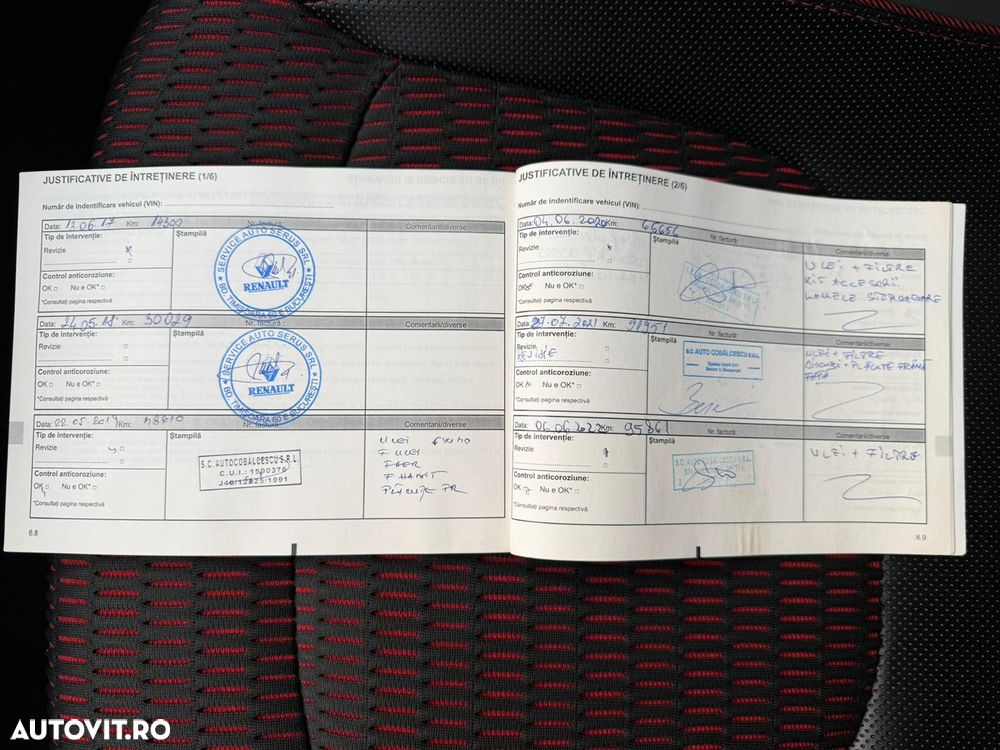 JUSTIFICATIVE DE ÎNTREȚINERE (1/6)
Număr de indentificare vehicul (VIN):
Data: 13.06.17 Km: 14500 Nr. factură:
Comentarii/diverse
Tip de intervenție:
Ștampilă
Revizie
Control anticoroziune:
OK Nu e OK*
*Consultați pagina respectivă
SERVICE AUTO SERUS SRL
RENAULT
BD. TIMIȘOARA 60 E BUCUREȘTI
Data: 24.05.18 Km: 30029 Nr. factură:
Comentarii/diverse
Tip de intervenție:
Ștampilă
Revizie
Control anticoroziune:
OK Nu e OK*
*Consultați pagina respectivă
SERVICE AUTO SERUS SRL
RENAULT
BD. TIMIȘOARA 60 E BUCUREȘTI
Data: 22.05.2019 Km: 48610 Nr. factură:
Comentarii/diverse
Tip de intervenție:
Ștampilă
Revizie
Control anticoroziune:
OK Nu e OK*
*Consultați pagina respectivă
S.C. AUTOCOBALCESCU S.R.L.
C.U.I.: 1590376
J40/12825/1991
ULEI
F ULEI
F AER
F HABIT
PLĂCUȚE FR
6.8
JUSTIFICATIVE DE ÎNTREȚINERE (2/6)
Număr de indentificare vehicul (VIN):
Data: 04.06.2020 Km: 65656 Nr. factură:
Comentarii/diverse
Tip de intervenție:
Ștampilă
Revizie
Control anticoroziune:
OK Nu e OK*
*Consultați pagina respectivă
ULEI + FILTRE
KIT ACCESORII
LAMELE STERGATOARE
Data: 27.07.2021 Km: Nr. factură:
Comentarii/diverse
Tip de intervenție:
Ștampilă
Revizie
Control anticoroziune:
OK Nu e OK*
*Consultați pagina respectivă
S.C. AUTO COBĂLCESCU S.R.L.
ULEI + FILTRE
DISCURI + PLĂCUȚE FRÂNĂ
FAȚĂ
Data: 06.06.2022 Km: 95861 Nr. factură:
Comentarii/diverse
Tip de intervenție:
Ștampilă
Revizie
Control anticoroziune:
OK Nu e OK*
*Consultați pagina respectivă
ULEI + FILTRE
6.9
AUTOVIT.RO